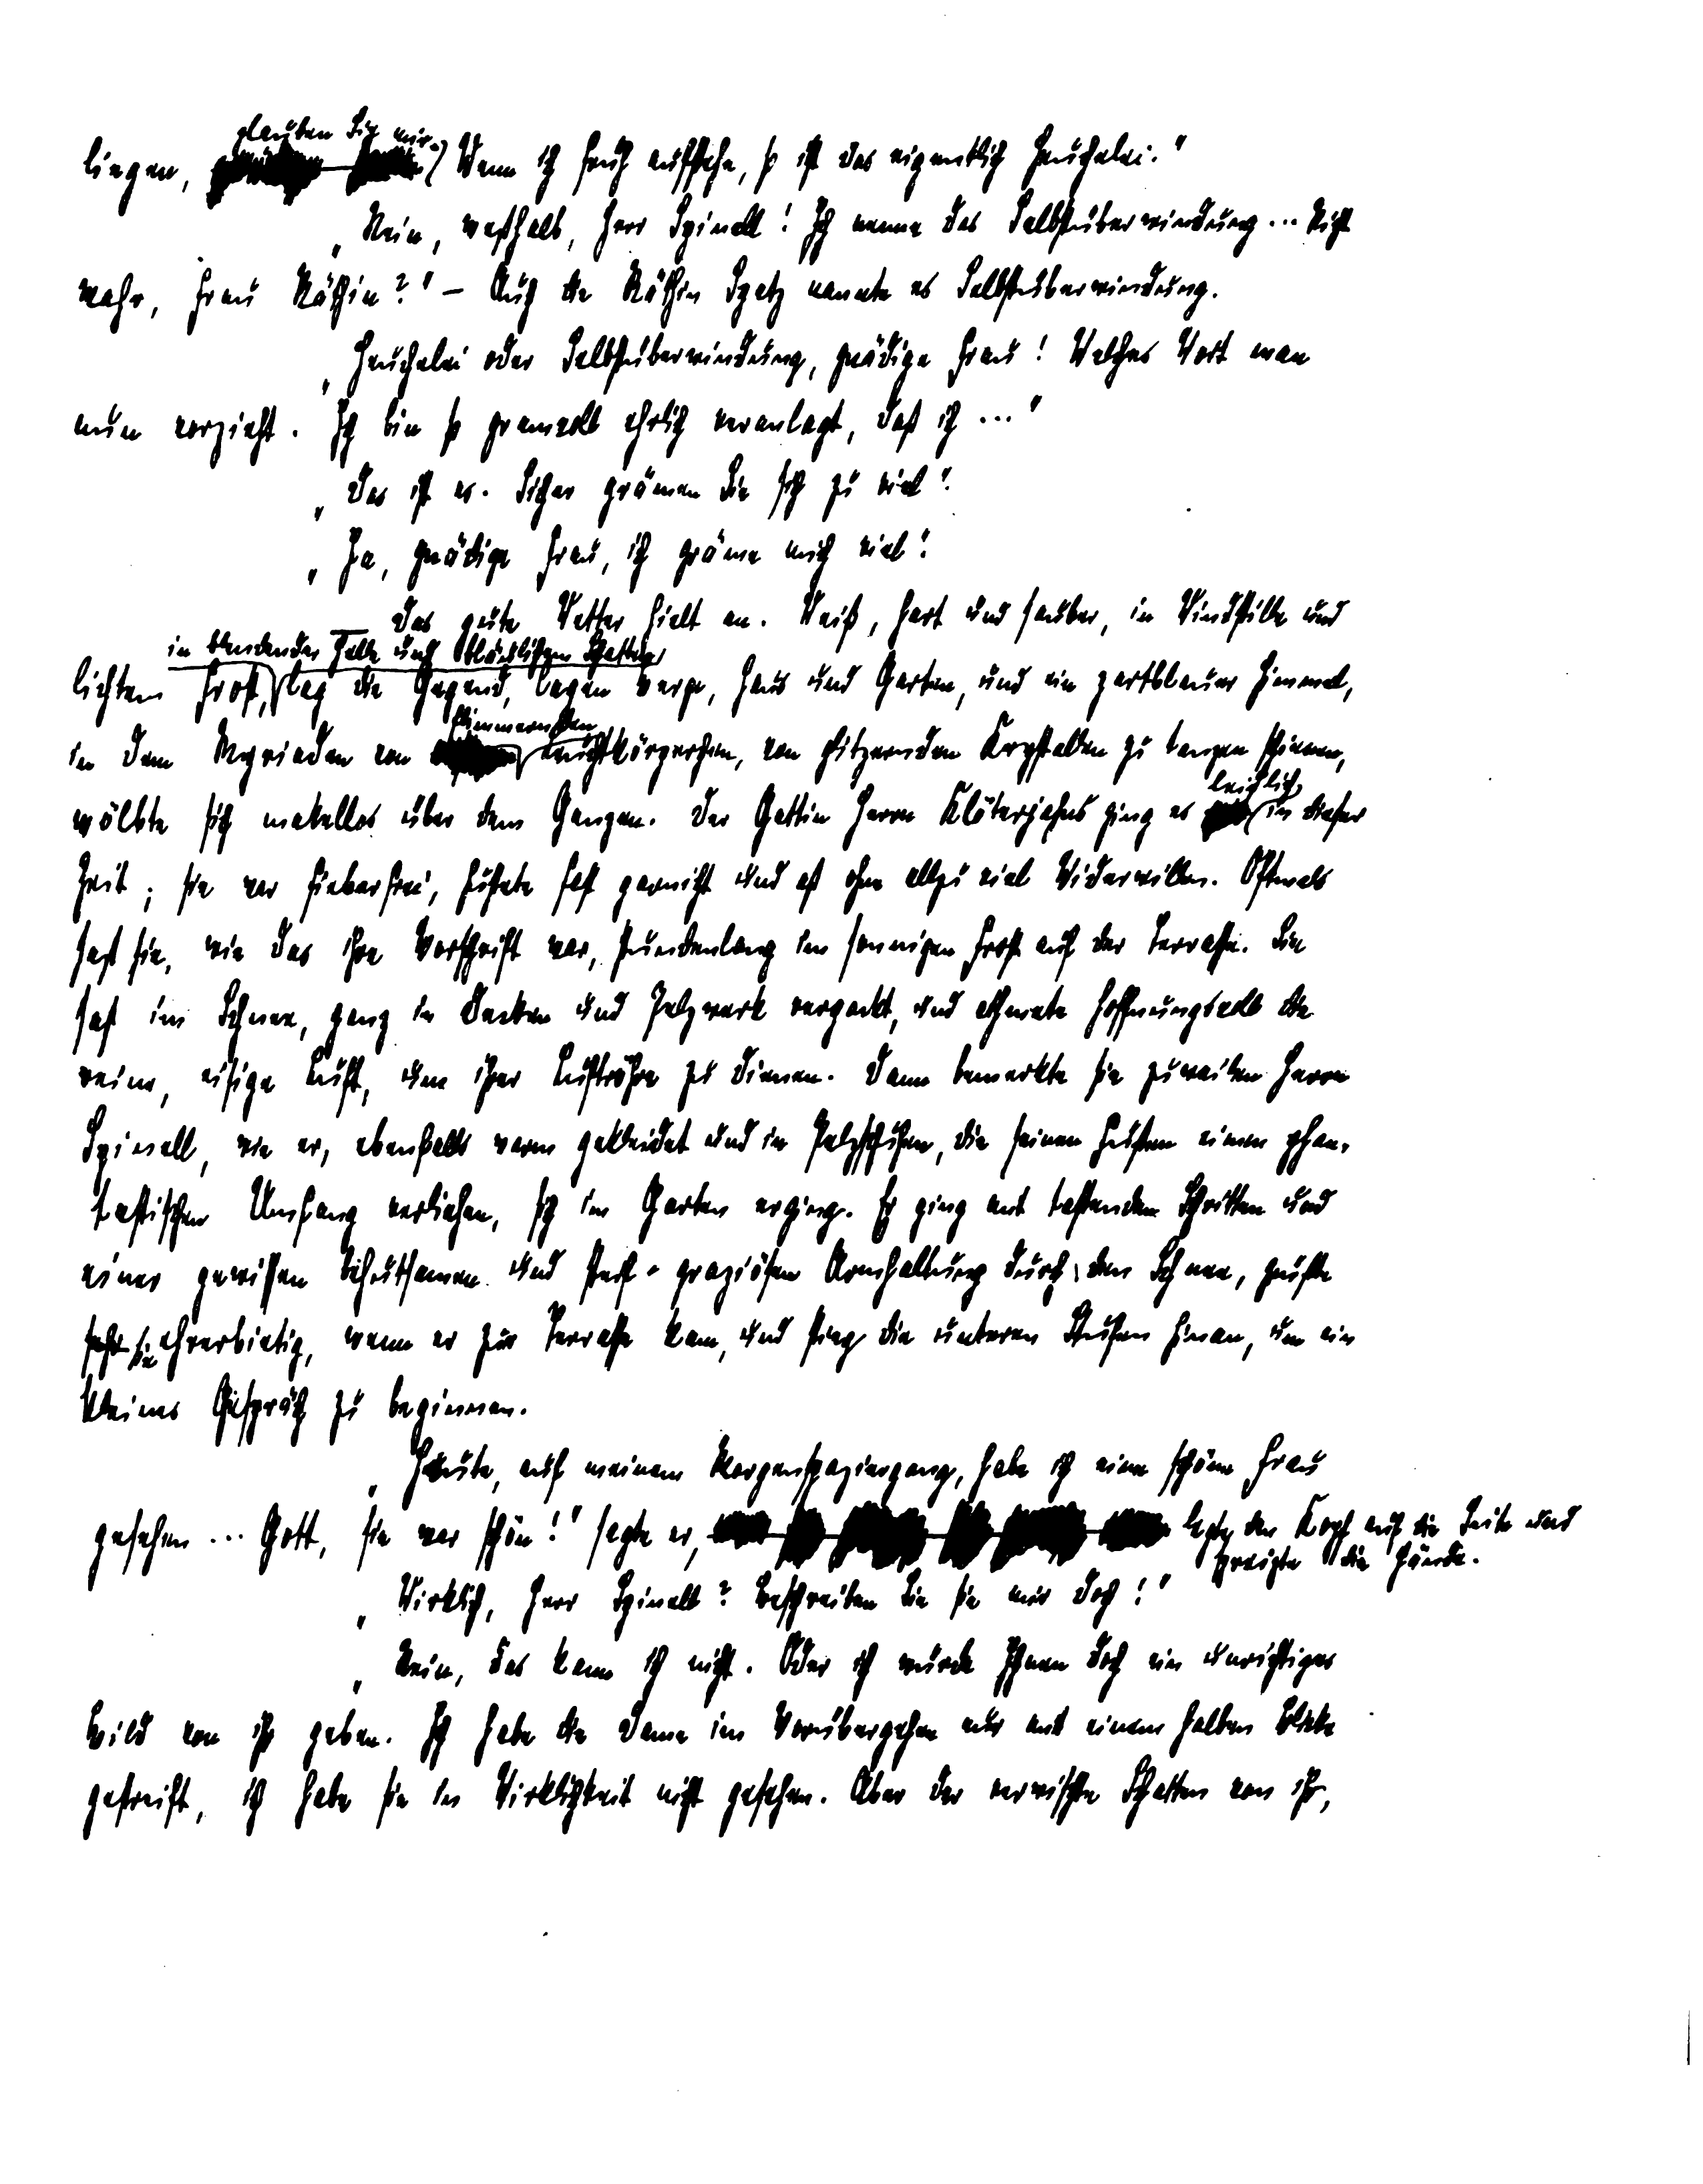 glauben Sie mir.
liegen, Wenn ich früh aufstehe, so ist das eigentlich Heuchelei."
„Nein, weßhalb, Herr Spinell! Ich nenne das Selbstüberwindung ... Nicht
wahr, Frau Räthin?" – Auch die Räthin Spatz nannte es Selbstüberwindung.
„Heuchelei oder Selbstüberwindung, gnädige Frau! Welches Wort man
nun vorzieht. Ich bin so gramvoll ehrlich veranlagt, daß ich ..."
„Das ist es. Sicher grämen Sie sich zu viel."
„Ja, gnädige Frau, ich gräme mich viel."
Das gute Wetter hielt an. Weiß, hart und sauber, in Windstille und
in blendender Helle und bläulichem Schatten
lichtem Frost, lag die Gegend, lagen Berge, Haus und Garten, und ein zartblauer Himmel,
flimmernden
in dem Myriaden von Leuchtkörperchen, von glitzernden Krystallen zu tanzen schienen,
leidlich
wölbte sich makellos über dem Ganzen. Der Gattin Herrn Klöterjahns ging es in dieser
Zeit; sie war fieberfrei, hustete fast garnicht und aß ohne allzu viel Widerwillen. Oftmals
saß sie, wie das ihre Vorschrift war, stundenlang im sonnigen Frost auf der Terrasse. Sie
saß im Schnee, ganz in Decken und Pelzwerk verpackt, und athmete hoffnungsvoll die
reine, eisige Luft, um ihrer Luftröhre zu dienen. Dann bemerkte sie zuweilen Herrn
Spinell, wie er, ebenfalls warm gekleidet und in Pelzschuhen, die seinen Füßen einen phan-
tastischen Umfang verliehen, sich im Garten erging. Er ging mit tastenden Schritten und
einer gewissen behutsamen und steif-graziösen Armhaltung durch den Schnee, grüßte
sehr sie ehrerbietig, wenn er zur Terrasse kam, und stieg die unteren Stufen hinan, um ein
kleines Gespräch zu beginnen.
„Heute, auf meinem Morgenspaziergang, habe ich eine schöne Frau
gesehen ... Gott, sie war schön!" sagte er, legte den Kopf auf die Seite und
spreizte die Hände.
„Wirklich, Herr Spinell? Beschreiben Sie sie mir doch!"
„Nein, das kann ich nicht. Oder ich würde Ihnen doch ein unrichtiges
Bild von ihr geben. Ich habe die Dame im Vorübergehen nur mit einem halben Blicke
gestreift, ich habe sie in Wirklichkeit nicht gesehen. Aber der verwischte Schatten von ihr,